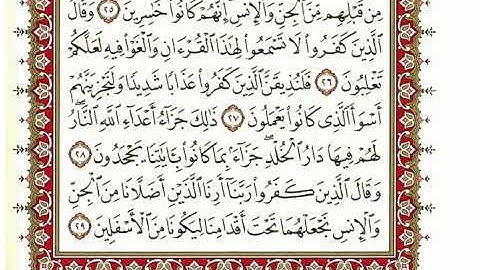 مِن قَبْلِهِم مِّنَ ٱلْجِنِّ وَٱلْإِنسِ إِنَّهُمْ كَانُوا۟ خَٰسِرِينَ ٢٥ وَقَالَ
ٱلَّذِينَ كَفَرُوا۟ لَا تَسْمَعُوا۟ لِهَٰذَا ٱلْقُرْءَانِ وَٱلْغَوْا۟ فِيهِ لَعَلَّكُمْ
تَغْلِبُونَ ٢٦ فَلَنُذِيقَنَّ ٱلَّذِينَ كَفَرُوا۟ عَذَابًا شَدِيدًا وَلَنَجْزِيَنَّهُمْ
أَسْوَأَ ٱلَّذِى كَانُوا۟ يَعْمَلُونَ ٢٧ ذَٰلِكَ جَزَآءُ أَعْدَآءِ ٱللَّهِ ٱلنَّارُ ۖ
لَهُمْ فِيهَا دَارُ ٱلْخُلْدِ ۖ جَزَآءًۢ بِمَا كَانُوا۟ بِـَٔايَٰتِنَا يَجْحَدُونَ ٢٨
وَقَالَ ٱلَّذِينَ كَفَرُوا۟ رَبَّنَآ أَرِنَا ٱلَّذَيْنِ أَضَلَّانَا مِنَ ٱلْجِنِّ
وَٱلْإِنسِ نَجْعَلْهُمَا تَحْتَ أَقْدَامِنَا لِيَكُونَا مِنَ ٱلْأَسْفَلِينَ ٢٩